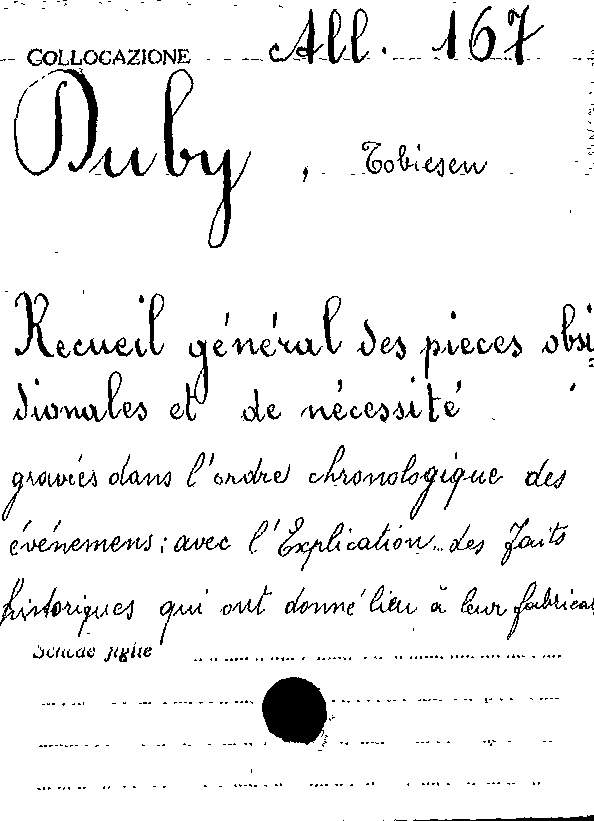 COLLOCAZIONE All. 167
Duby, Tobiesen
Recueil général des pieces obsi=
dionales et de nécessité
gravées dans l'ordre chronologique des
événemens; avec l'Explication des faits
historiques qui ont donné lieu à leur fabrica
Schede figlie